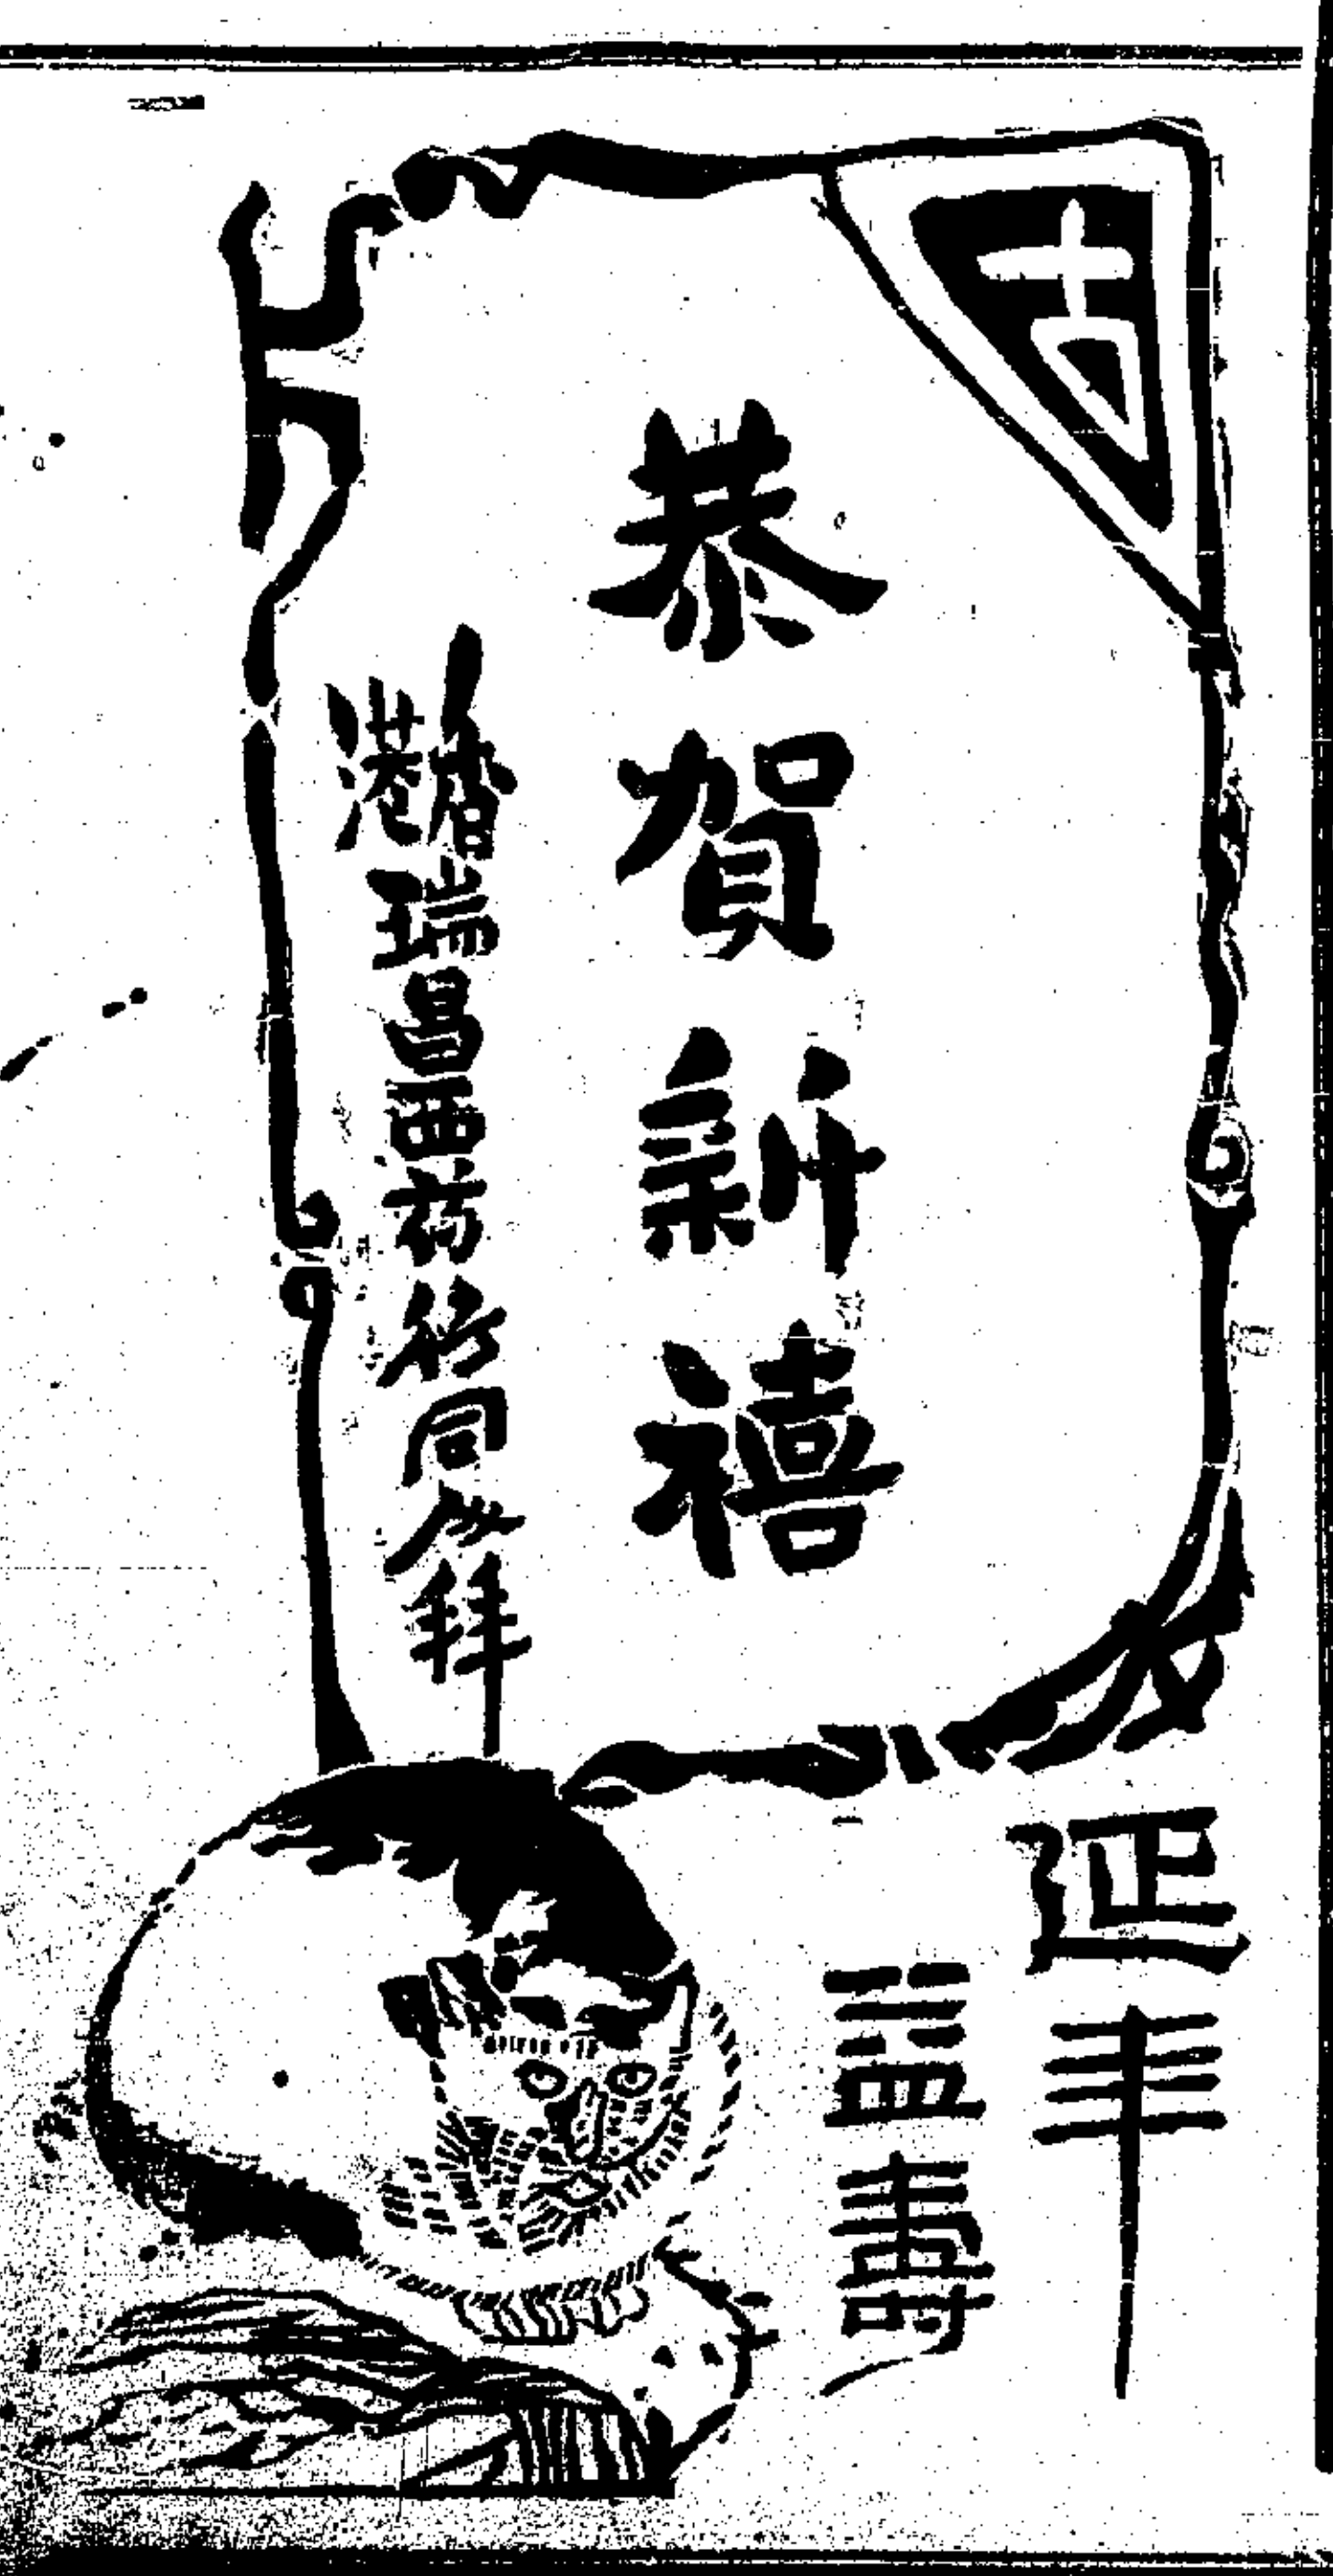 吉
恭賀新禧
香港瑞昌西药行同人拜
延年
益壽